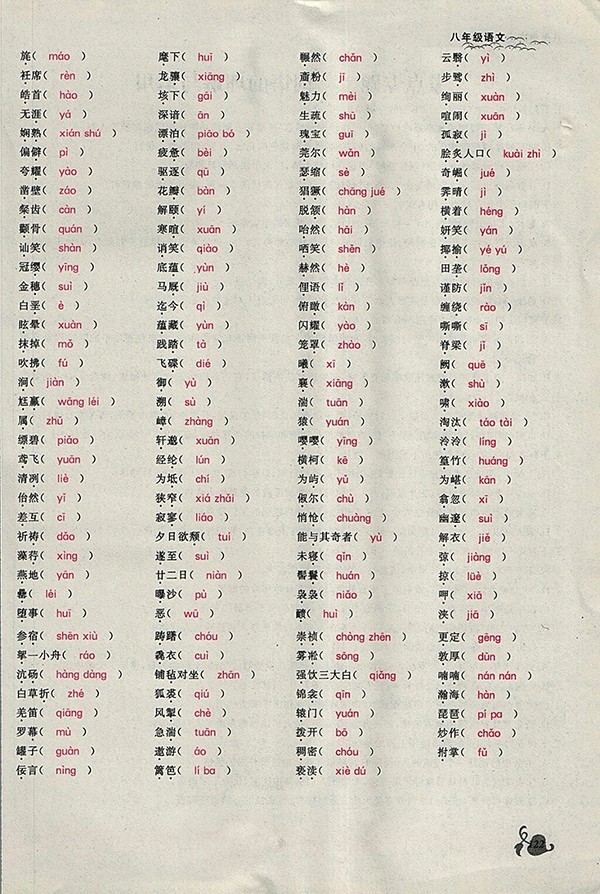 八年级语文
旄( máo ) 麾下( huī ) 冁然( chǎn ) 云翳( yì )
衽席( rèn ) 龙骧( xiāng ) 齑粉( jī ) 步骘( zhì )
皓首( hào ) 垓下( gāi ) 魅力( mèi ) 绚丽( xuàn )
无涯( yá ) 深谙( ān ) 生疏( shū ) 喧闹( xuān )
娴熟( xián shú ) 漂泊( piāo bó ) 瑰宝( guī ) 孤寂( jì )
偏僻( pì ) 疲惫( bèi ) 莞尔( wǎn ) 脍炙人口( kuài zhì )
夸耀( yào ) 驱逐( qū ) 瑟缩( sè ) 奇崛( jué )
凿壁( záo ) 花瓣( bàn ) 猖獗( chāng jué ) 霁晴( jì )
粲齿( càn ) 解颐( yí ) 脱颔( hàn ) 横着( héng )
颧骨( quán ) 寒暄( xuān ) 咍然( hāi ) 妍笑( yán )
讪笑( shàn ) 诮笑( qiào ) 哂笑( shěn ) 揶揄( yé yú )
冠缨( yīng ) 底蕴( yùn ) 赫然( hè ) 田垄( lǒng )
金穗( suì ) 马厩( jiù ) 俚语( lǐ ) 谨防( jǐn )
白垩( è ) 迄今( qì ) 俯瞰( kàn ) 缠绕( rào )
眩晕( xuàn ) 蕴藏( yùn ) 闪耀( yào ) 嘶嘶( sī )
抹掉( mǒ ) 践踏( tà ) 笼罩( zhào ) 脊梁( jǐ )
吹拂( fú ) 飞碟( dié ) 曦( xī ) 阙( quē )
涧( jiàn ) 御( yù ) 襄( xiāng ) 漱( shù )
尪羸( wāng léi ) 溯( sù ) 湍( tuān ) 啸( xiào )
属( zhǔ ) 嶂( zhàng ) 猿( yuán ) 淘汰( táo tài )
缥碧( piǎo ) 轩邈( xuān ) 嘤嘤( yīng ) 泠泠( líng )
鸢飞( yuān ) 经纶( lún ) 横柯( kē ) 篁竹( huáng )
清冽( liè ) 为坻( chí ) 为屿( yǔ ) 为嵁( kān )
佁然( yǐ ) 狭窄( xiá zhǎi ) 俶尔( chù ) 翕忽( xī )
差互( cī ) 寂寥( liáo ) 悄怆( chuàng ) 幽邃( suì )
祈祷( dǎo ) 夕日欲颓( tuí ) 能与其奇者( yù ) 解衣( jiě )
藻荇( xìng ) 遂至( suì ) 未寝( qǐn ) 弶( jiàng )
燕地( yān ) 廿二日( niàn ) 髻鬟( huán ) 掠( lüè )
罍( léi ) 曝沙( pù ) 袅袅( niǎo ) 呷( xiā )
堕事( huī ) 恶( wū ) 靧( huì ) 浃( jiā )
参宿( shēn xiù ) 踌躇( chóu ) 崇祯( chòng zhēn ) 更定( gēng )
挐一小舟( ráo ) 毳衣( cuì ) 雾凇( sōng ) 敦厚( dūn )
沆砀( hàng dàng ) 铺毡对坐( zhān ) 强饮三大白( qiǎng ) 喃喃( nán nán )
白草折( zhé ) 狐裘( qiú ) 锦衾( qīn ) 瀚海( hàn )
羌笛( qiāng ) 风掣( chè ) 辕门( yuán ) 琵琶( pí pa )
罗幕( mù ) 急湍( tuān ) 拨开( bō ) 炒作( chǎo )
罐子( guàn ) 遨游( áo ) 稠密( chóu ) 拊掌( fǔ )
佞言( nìng ) 篱笆( lí ba ) 亵渎( xiè dú )
122